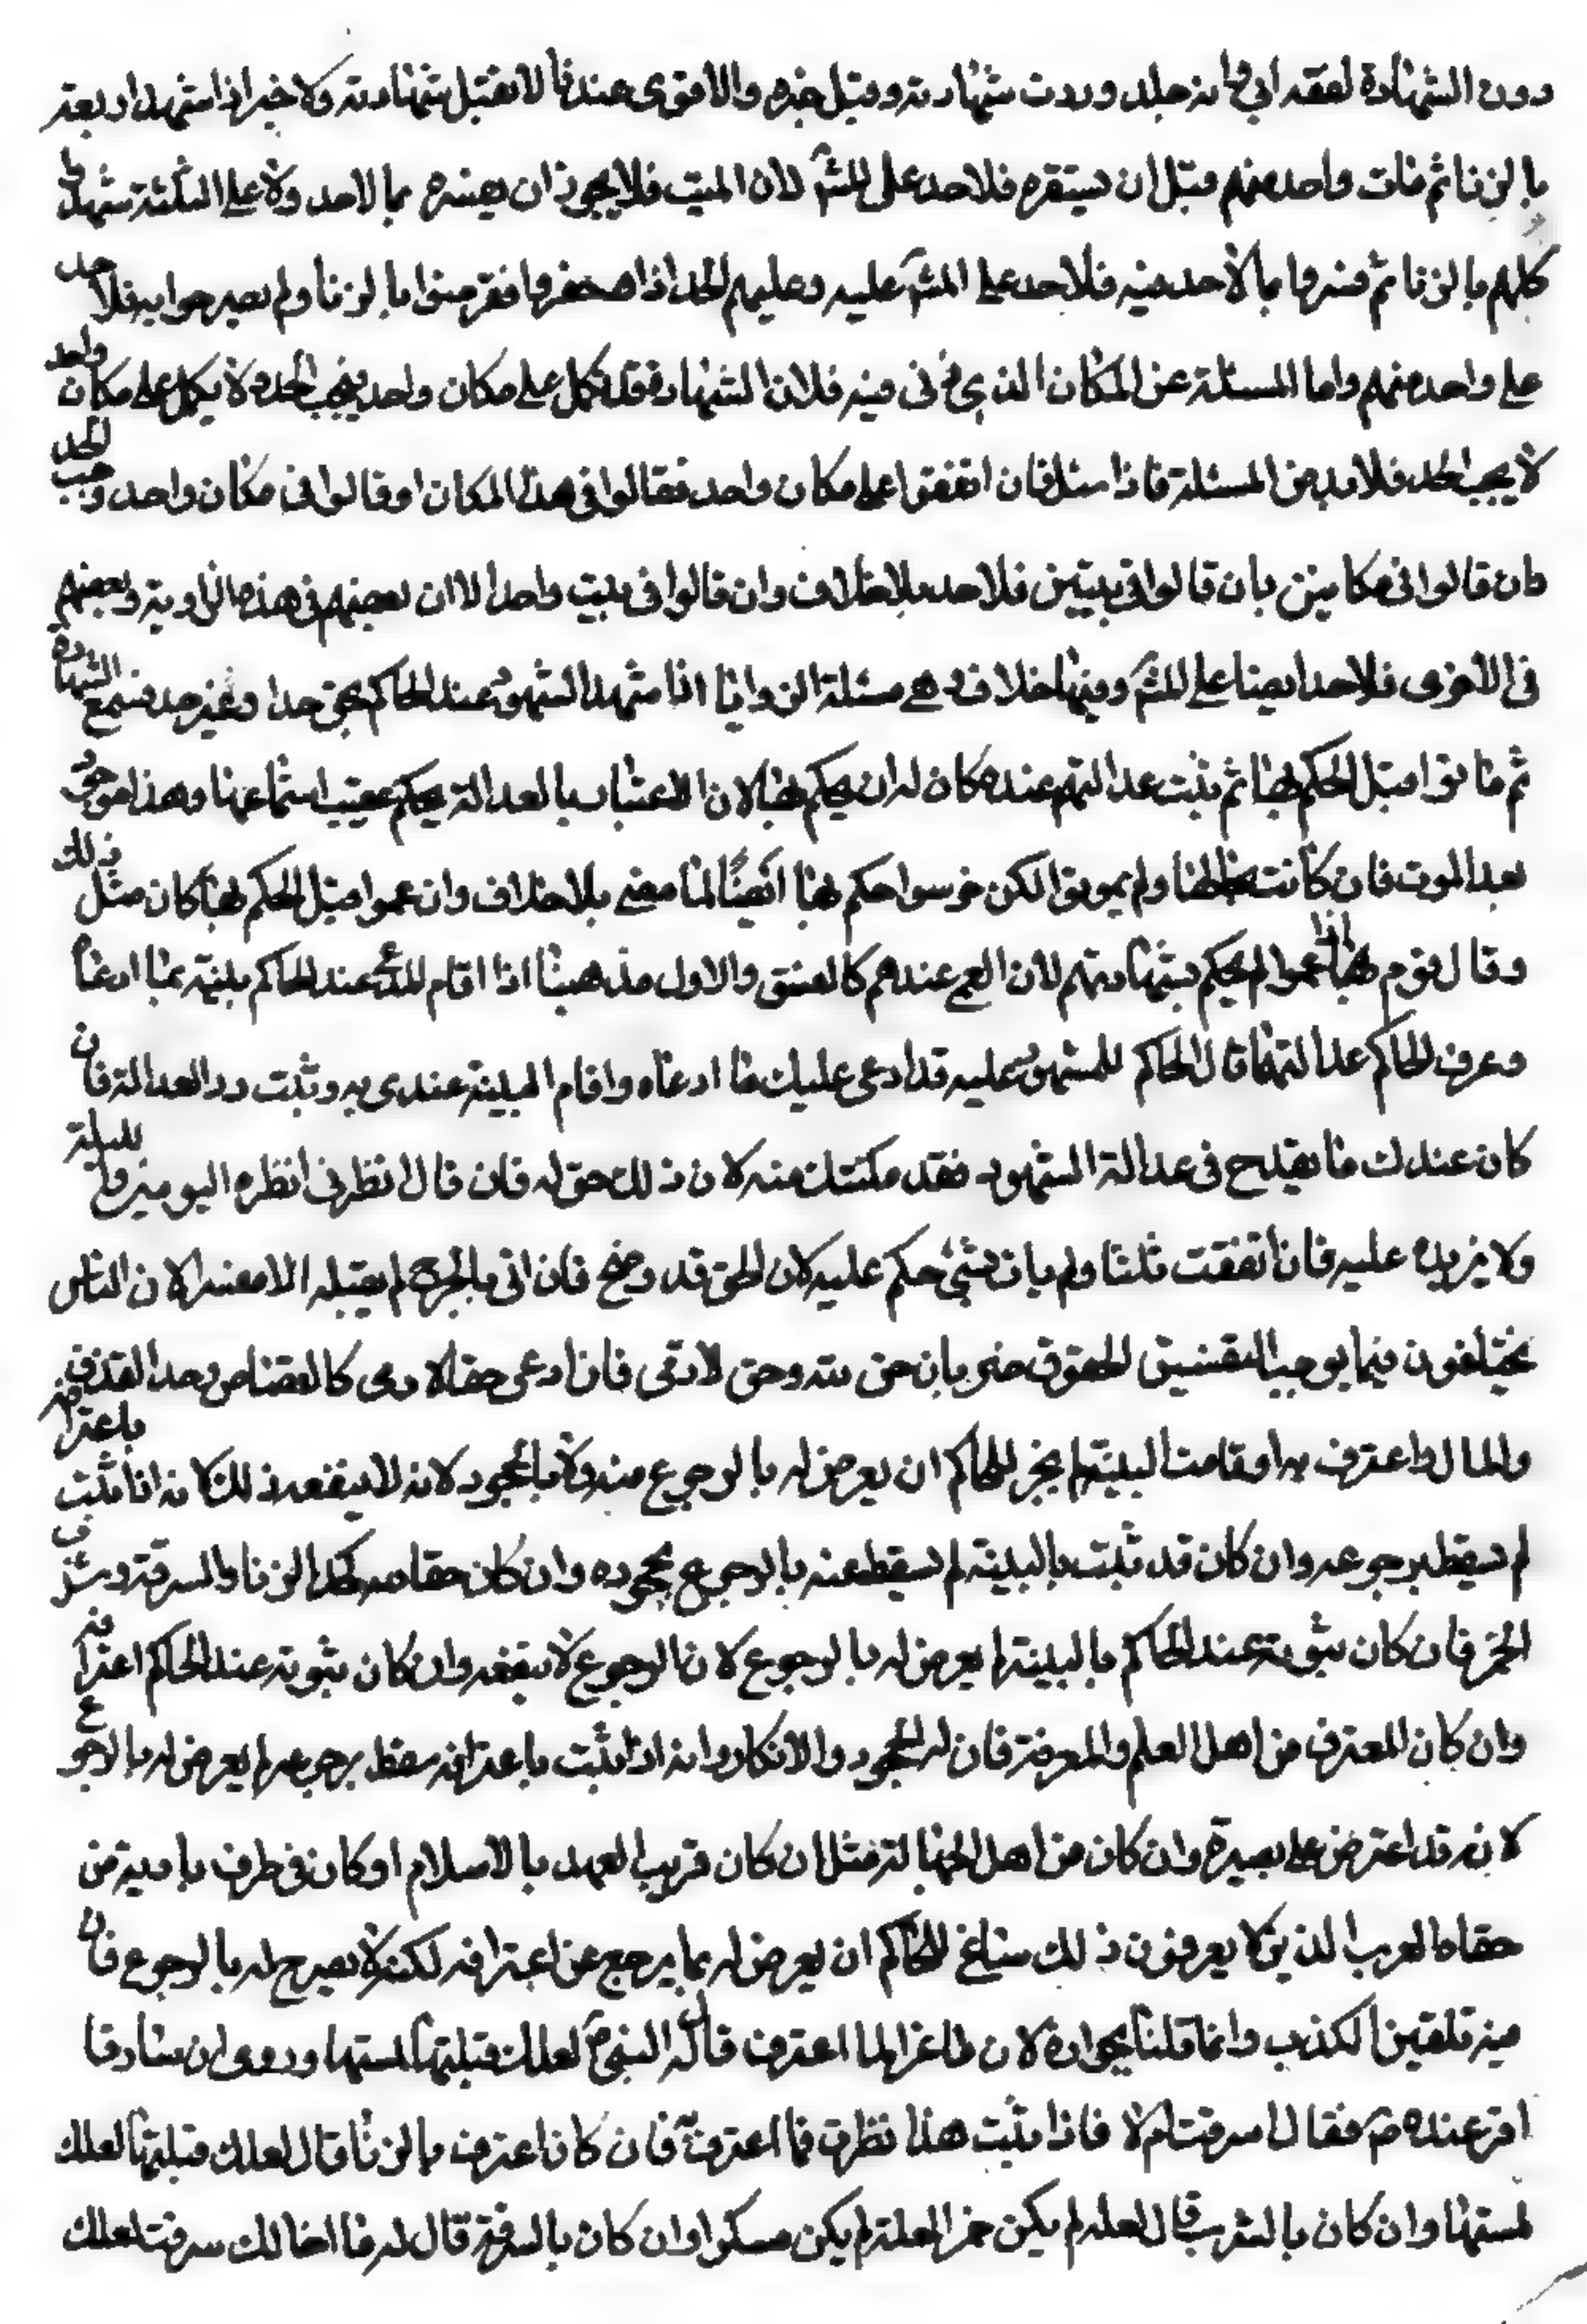 دون الشهادة لقصة ابي بكرة فانه جلد وردت شهادته وقبل خبره والاقوى عندنا لا تقبل شهادته ولا خبر اذا شهد اربعة
بالزنا ثم مات واحد منهم قبل ان يستفسره فلا حد على المش لان الميت فلا يجوز ان يفسره بما لا حد ولا على الثلثة شهد وا
كلهم بالزنا ثم فسروا بما لا حد فيه فلا حد على المش عليه وعليهم الحد اذا فقد صنوا بالزنا ولم يصرحوا به فلا حد
على واحد منهم واما المسئلة عن المكان الذي زنى فيه فلان الشهادة قد تكمل على مكان واحد فيجب الحد ولا يكمل على مكان واحد
لا يجب الحد فلا بد من المسئلة فاذا سئل فان اتفقوا على مكان واحد فقالوا في هذا المكان او قالوا في مكان واحد وجب الحد
وان قالوا في مكانين بان قالوا في بيتين فلا حد بلا خلاف وان قالوا في بيت واحد الا ان بعضهم في هذه الزاوية وبعضهم
في الاخرى فلا حد ايضا على المش وفيها خلاف وهي مسئلة الزوايا اذا شهد الشهود عند الحاكم بحق حدا وغير حد فسمع الشهادة
ثم ماتوا قبل الحكم بها ثم ثبت عدالتهم عنده كان له ان يحكم بها لان الاعتبار بالعدالة يحكم عقيب استماعها وهذا موجود
بعد الموت فان كانت بحالها ولم يموتوا لكن خرسوا حكم بها ايضا لما مضى بلا خلاف وان عموا قبل الحكم بها كان مثل ذلك
وقال قوم اذا عموا لم يحكم بشهادتهم لان العمى عندهم كالفسق والاول مذهبنا اذا اقام المدعي عند الحاكم بينة بما ادعاه
وعرف الحاكم عدالتهما قال الحاكم للمشهود عليه قد ادعى عليك ما ادعاه واقام البينة عندي به وثبت ددالعدالة فان
كان عندك ما يقدح في عدالة الشهود فقد مكنتك منه لان ذلك حق له فان قال انظرني انظره اليومين والثلثة
ولا يزيده عليه فان اتفقت ثلثا ولم يات بشئ حكم عليه لان الحق قد وضح فان اتى بالجرح لم يقبله الا مفسرا لان الناس
يختلفون فيما يوجب التفسيق الحقوق ضربان حق لله وحق لادمي فان ادعى حقا لادمي كالقصاص وحد القذف
والمال واعترف به او قامت البينة لم يجز للحاكم ان يعرض له بالرجوع منه ولا بالجحود لانه لا ينفعه ذلك لانه اذا ثبت باعترافه
لم يسقط برجوعه وان كان قد ثبت بالبينة لم يسقط عنه بالرجوع بجحوده وان كان حقا لله كحد الزنا والسرقة وشرب
الخمر فان كان ثبوته عند الحاكم بالبينة لم يعرض له بالرجوع لان الرجوع لا ينفعه وان كان ثبوته عند الحاكم اعترافه
وان كان المعترف من اهل العلم والمعرفة فان له الجحود والانكار وانه اذا ثبت باعترافه سقط برجوعه لم يعرض له بالرجوع
لانه قد اعترض على بصيرة وان كان من اهل الجهالة مثل ان كان قريب العهد بالاسلام او كان في طرف بادية من
حفاة العرب الذين لا يعرفون ذلك ساغ للحاكم ان يعرض له بما يرجع عن اعترافه لكنه لا يصرح له بالرجوع فان
فيه تلقين الكذب وانما قلنا بجوازه لان ماعزا لما اعترف قال له النبي ص لعلك قبلتها لمستها وروى ان سارقا
اقر عنده ص فقال اسرقت ام لا فاذا ثبت هذا نظرت فما اعترف فان كان اعترف بالزنا قال لعلك قبلتها لعلك
لمستها وان كان بالشرب قال لعله لم يكن خمرا لعله لم يكن مسكرا وان كان بالسرقة قال له ما اخالك سرقت لعلك